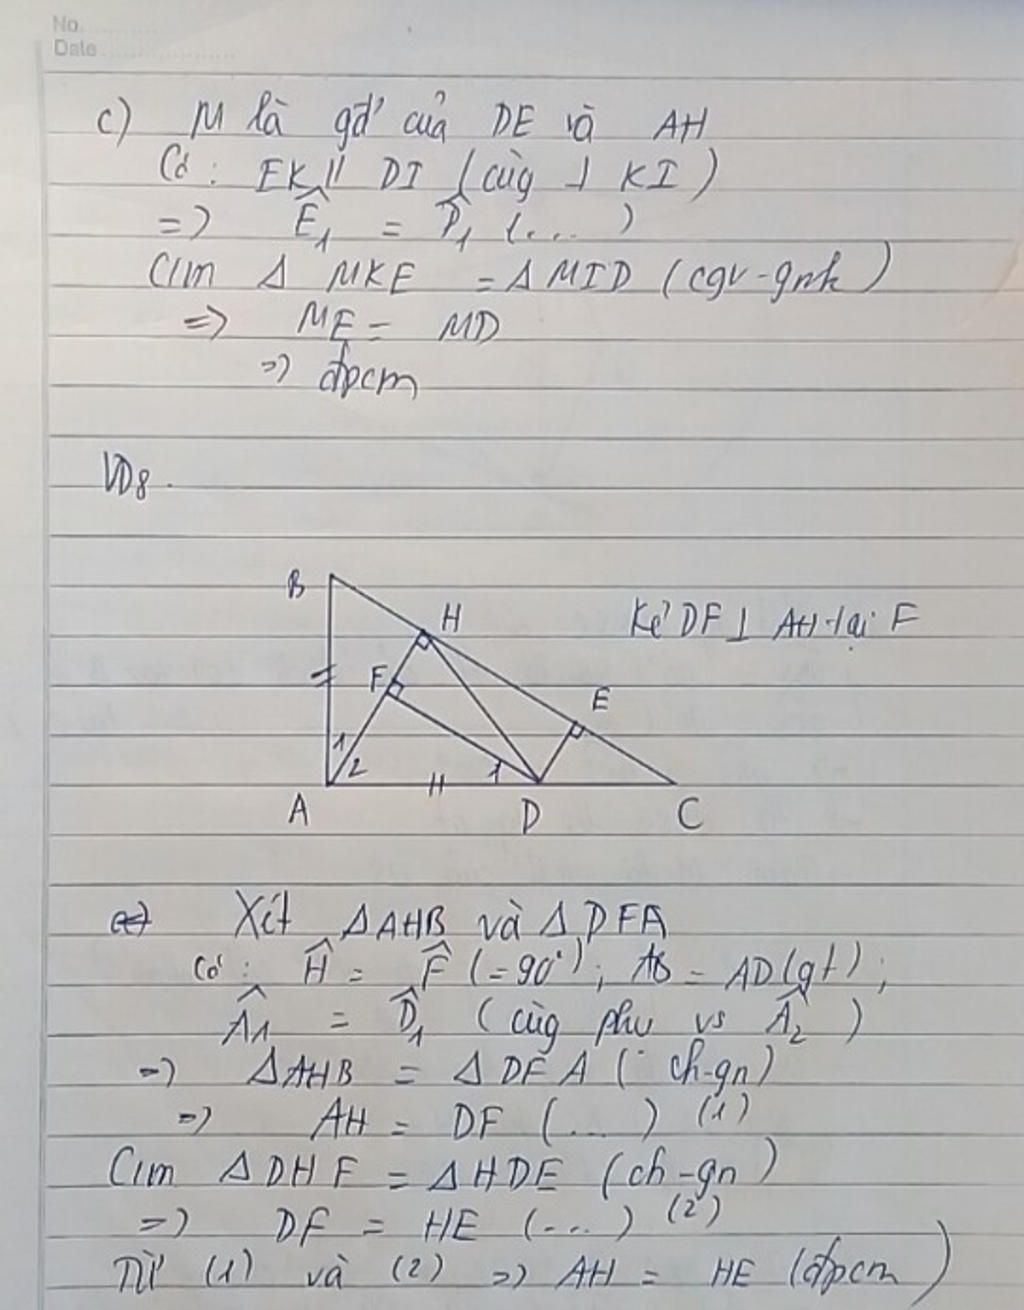 No.
Date
c) M là gđ' của DE và AH
Có : EK // DI (cùg ⊥ KI)
=> Ê₁ = D̂₁ (...)
C/m Δ MKE = Δ MID (cgv-gnk)
=> ME = MD
=> đpcm
VD8.
B
H
Kẻ DF ⊥ AH tại F
F
E
1
2
1
A
D
C
a) Xét ΔAHB và ΔDFA
Có : Ĥ = F̂ (=90°) ; AB = AD (gt) ;
Â₁ = D̂₁ (cùg phụ vs Â₂)
=> ΔAHB = ΔDFA (ch-gn)
=> AH = DF (...) (1)
C/m ΔDHF = ΔHDE (ch-gn)
=> DF = HE (...) (2)
Từ (1) và (2) => AH = HE (đpcm)